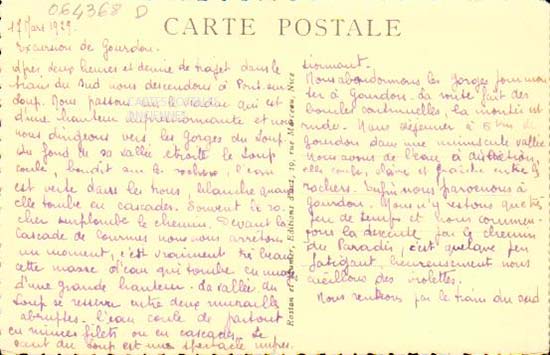 064368 D
CARTE POSTALE
17 Mars 1929.
Excursion de Gourdon.
Après deux heures et demie de trajet dans le
train du Sud nous descendons à Pont-sur-
Loup. Nous passons le viaduc qui est
d'une hauteur impressionnante et nous
nous dirigeons vers les Gorges du Loup.
Au fond de sa vallée étroite le Loup
coule, bondit sur les rochers, l'eau
est verte dans les trous, blanche quand
elle tombe en cascades. Souvent le ro-
cher surplombe le chemin. Devant la
cascade de Courmes nous nous arrêtons
un moment, c'est vraiment très beau
cette masse d'eau qui tombe en nuage
d'une grande hauteur. La vallée du
Loup se resserre entre deux murailles
abruptes. L'eau coule de partout
en minces filets ou en cascades. Le
saut du Loup est une spectacle impres-
sionnant.
Nous abandonnons les gorges pour mon-
ter à Gourdon. La route fait des
boucles continuelles, la montée est
rude. Nous déjeuner à 5 km de
Gourdon dans une minuscule vallée.
Nous avons de l'eau à discrétion,
elle coule, claire et fraîche entre les
rochers. Enfin nous parvenons à
Gourdon. Nous n'y restons que très
peu de temps et nous commen-
çons la descente par le chemin
du Paradis, c'est quelque peu
fatigant, heureusement nous
cueillons des violettes.
Nous rentrons par le train du sud
Rostan et Munier, Editions d'art, 19, rue Meyerbeer, Nice